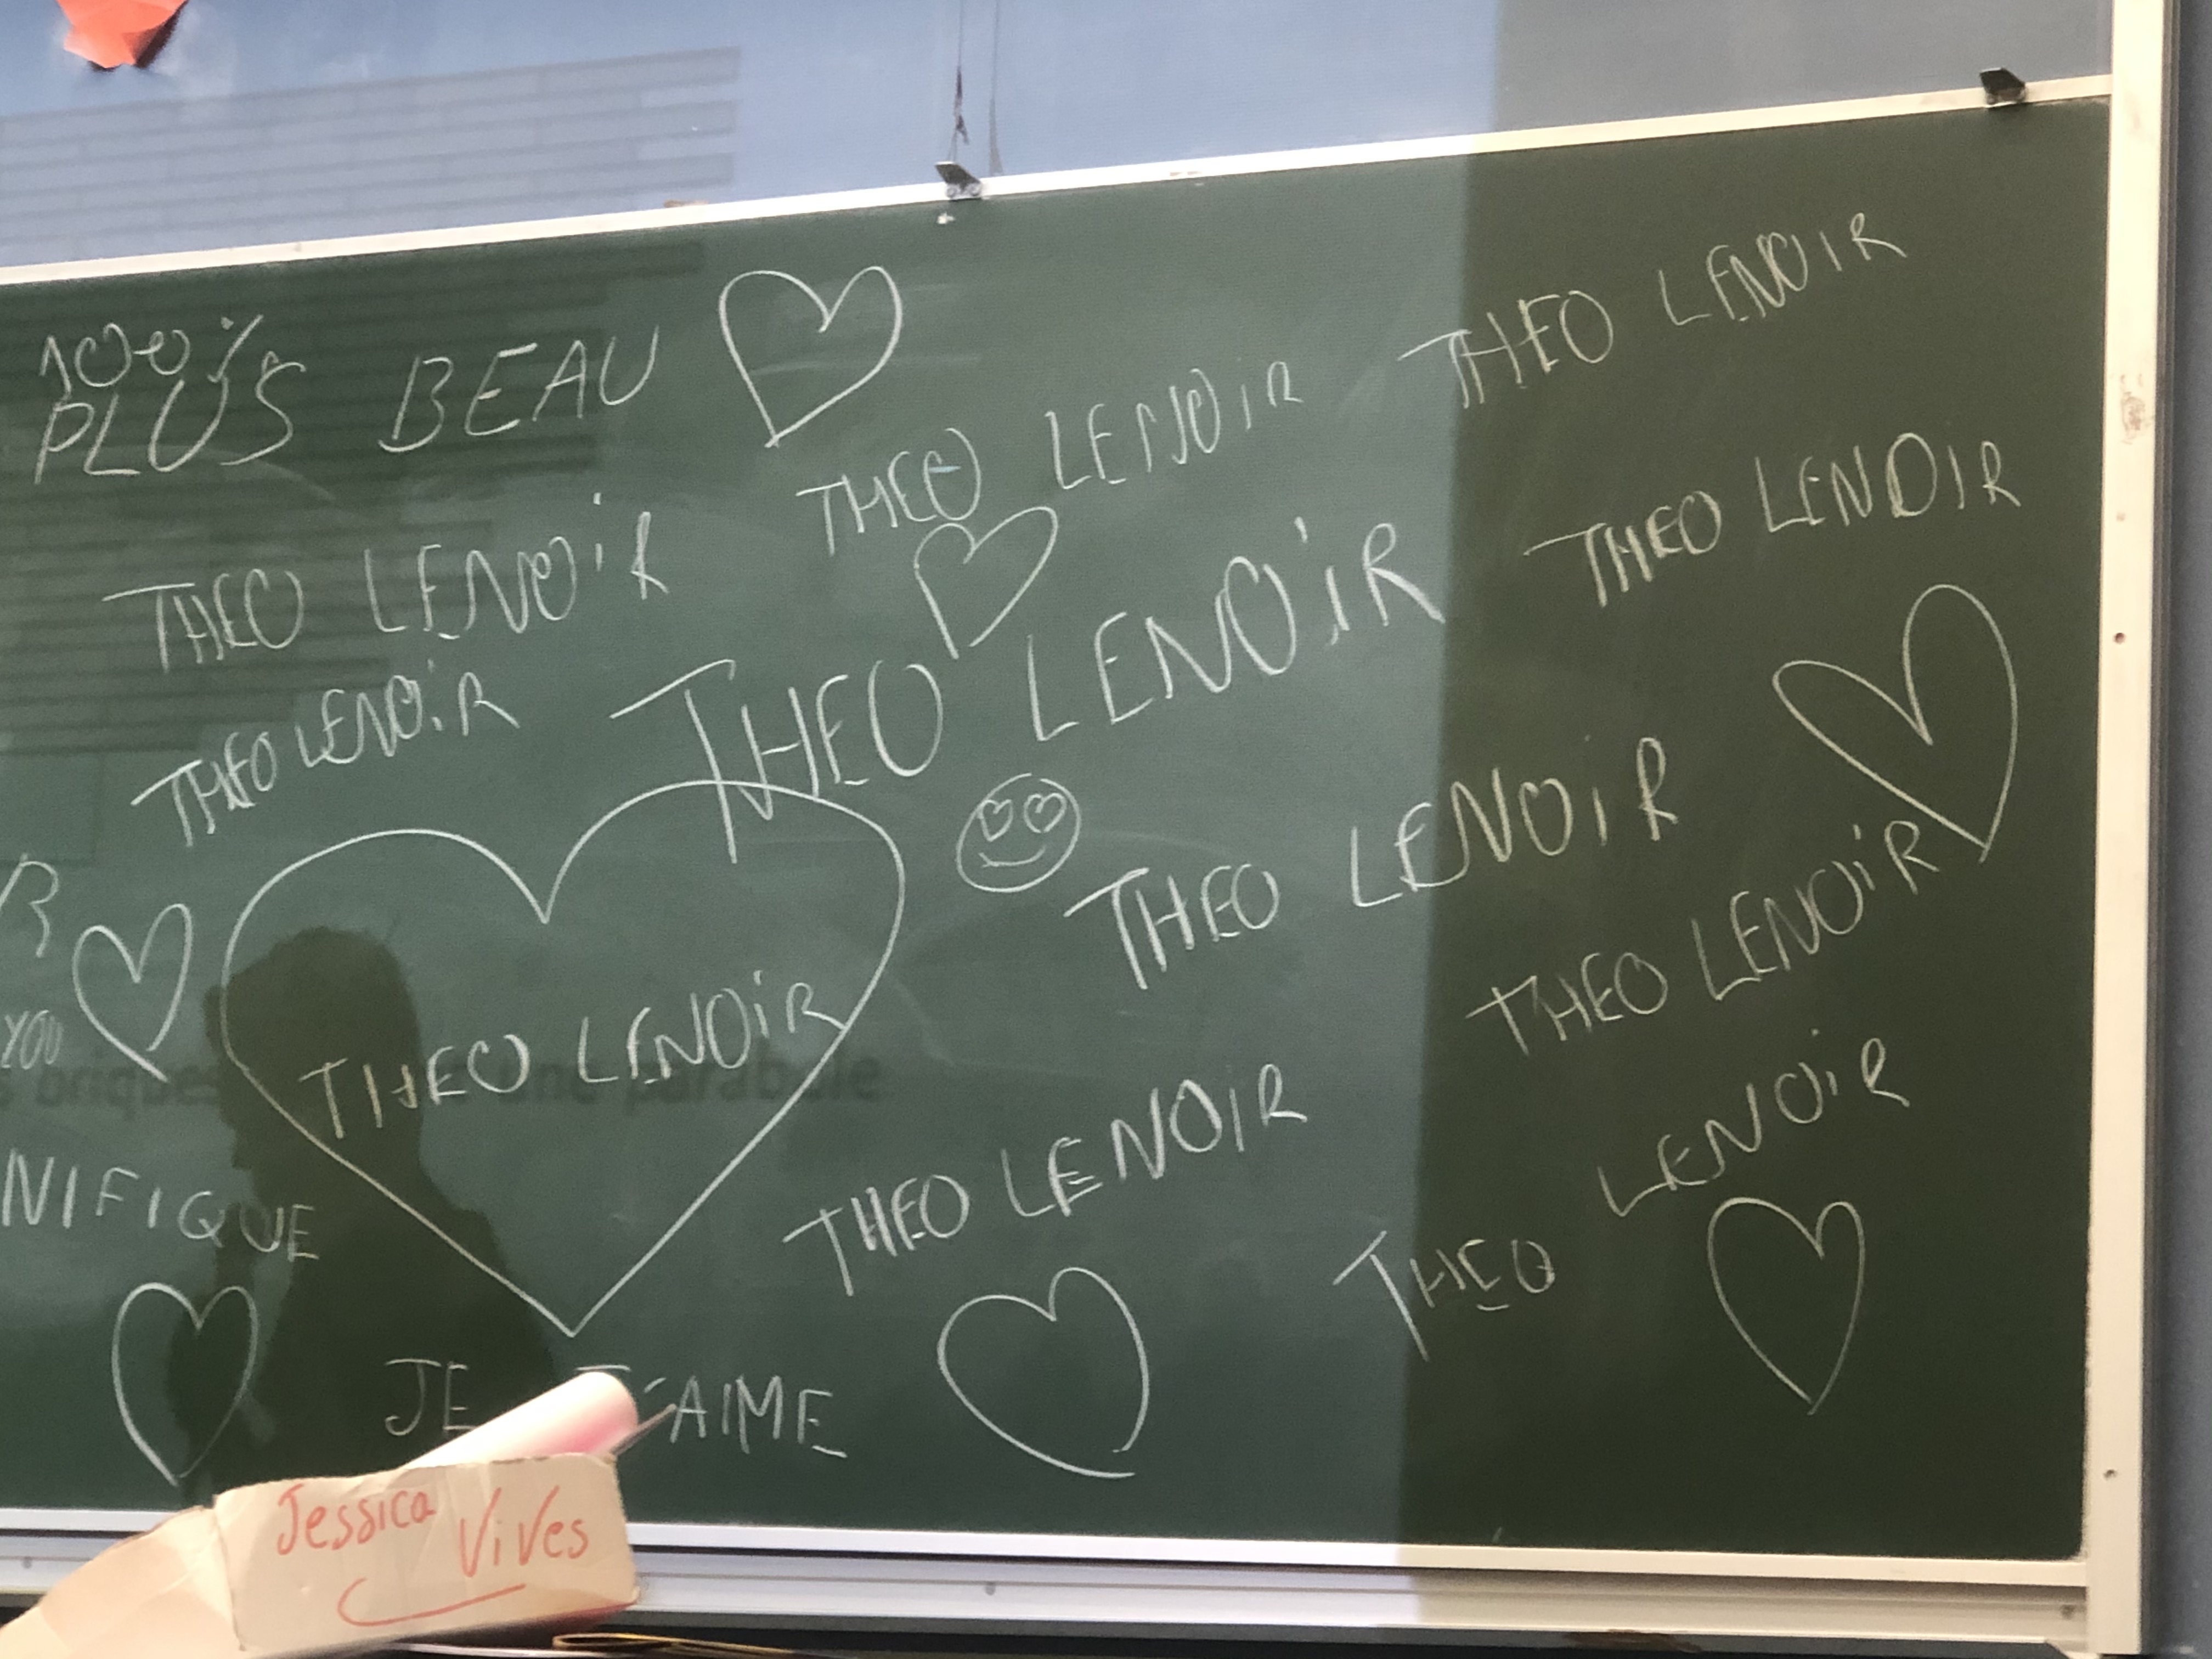 100%
PLUS BEAU
THEO LENOIR
THEO LENOIR
THEO LENOIR
THEO LENOIR
THEO LENOIR
THEO LENOIR
THEO LENOIR
THEO LENOIR
YOU
THEO LENOIR
briques
une parabole
NIFIQUE
THEO LENOIR
THEO LENOIR
JE T'AIME
Jessica
ViVes